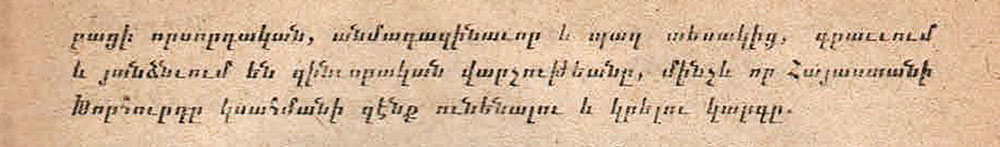 բացի որսորդական, անմադազինաւոր և պաղ տեսակից, գրաււում
և յանձնւում են զինւորական վարչութեանը, մինչև որ Հայաստանի
Խորհուրդը կսահմանի զէնք ունենալու և կրելու կարգը.